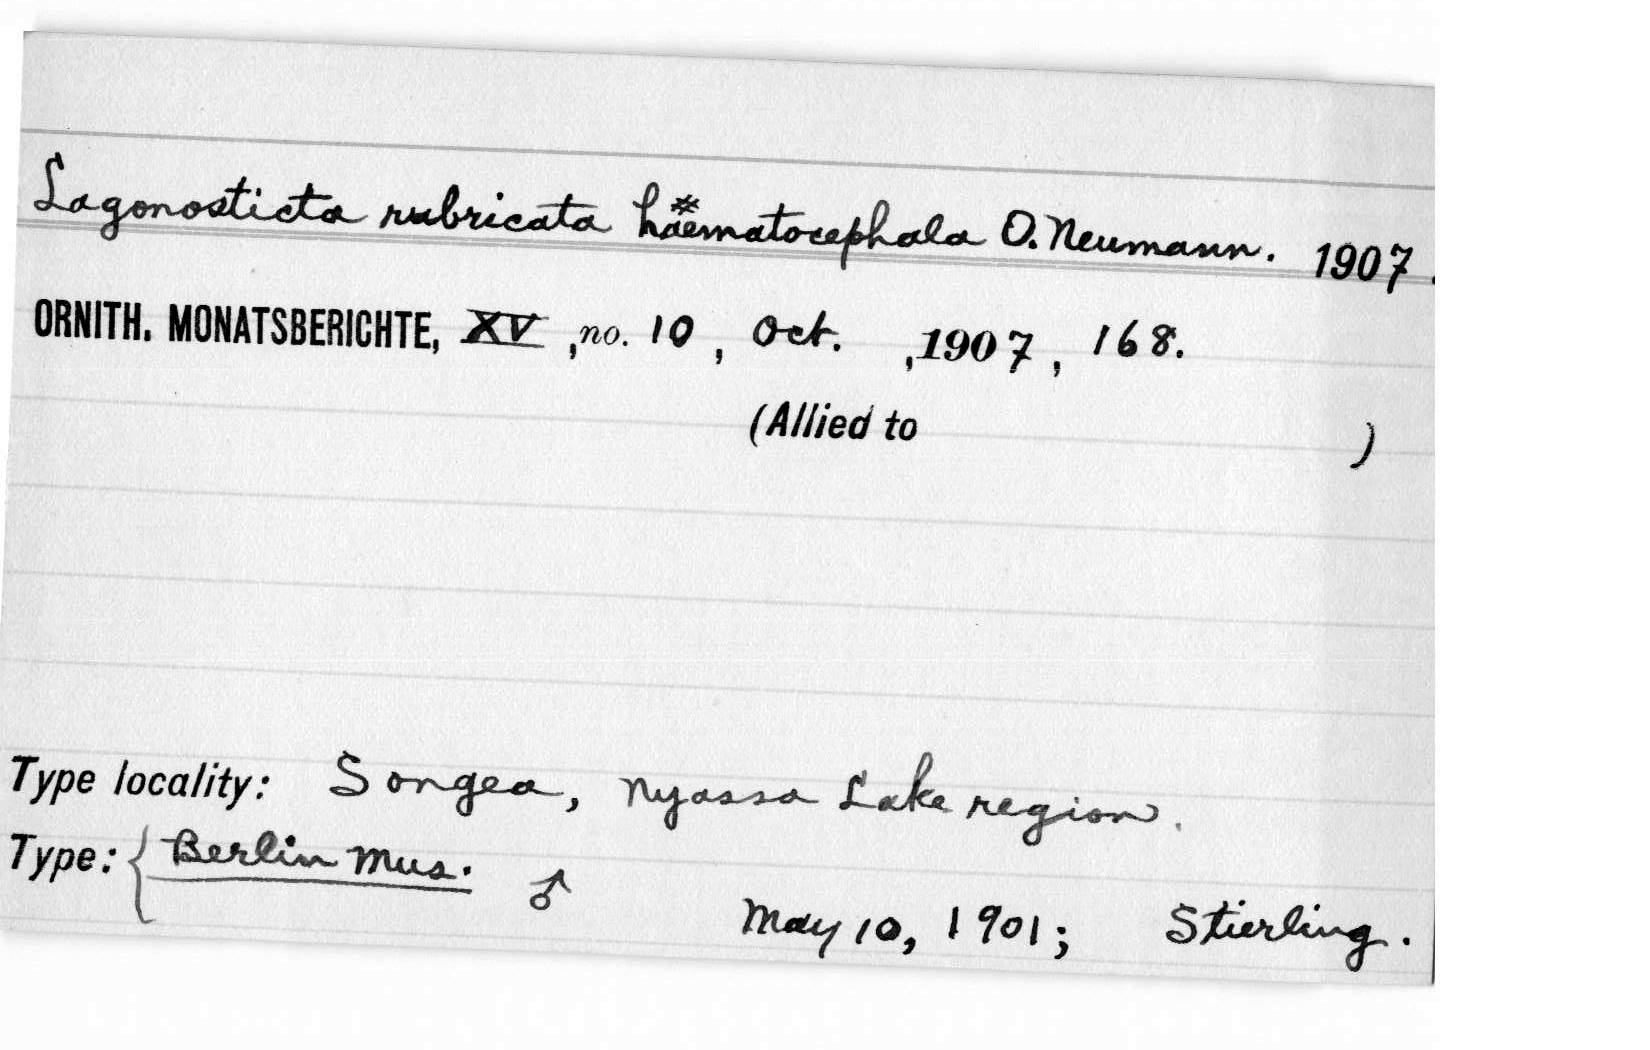 Lagonosticta rubricata hæmatocephala O. Neumann. 1907.
ORNITH. MONATSBERICHTE, XV, no. 10, Oct. ,1907, 168.
(Allied to )
Type locality: Songea, Nyassa Lake region.
Type: { Berlin Mus. ♂
May 10, 1901; Stierling.